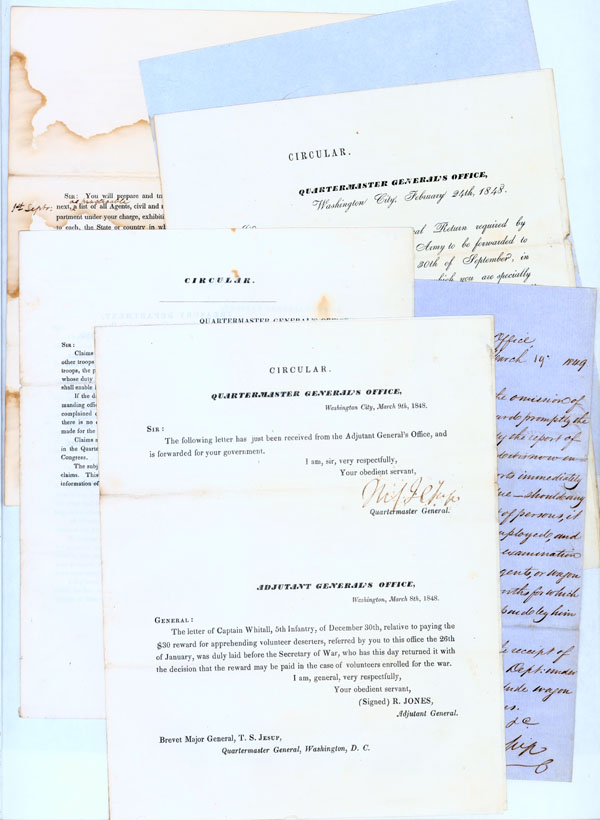 SIR: You will prepare and tr
1st Septr:
next, a list of all Agents, civil and
partment under your charge, exhibiti
to each, the State or country in wh
CIRCULAR.
QUARTERMASTER GENERAL'S OFFICE,
Washington City, February 24th, 1848.
al Return required by
Army to be forwarded to
30th of September, in
which you are specially
CIRCULAR.
QUARTERMASTER GENERAL'S
SIR:
Claims
other troops
troops, the p
whose duty
shall enable
If the d
manding offi
complained
there is no
made for the
Claims
in the Quart
Congress.
The subj
claims. This
information of
Office
March 19 1849
the omission of
promptly the
by the report of
now on
immediately
should any
of persons, it
employed, and
examination
gents, or wagon
nths for which
him
receipt of
Dept: under
wagon
&c
CIRCULAR.
QUARTERMASTER GENERAL'S OFFICE,
Washington City, March 9th, 1848.
SIR:
The following letter has just been received from the Adjutant General's Office, and
is forwarded for your government.
I am, sir, very respectfully,
Your obedient servant,
Quartermaster General.
ADJUTANT GENERAL'S OFFICE,
Washington, March 8th, 1848.
GENERAL:
The letter of Captain Whitall, 5th Infantry, of December 30th, relative to paying the
$30 reward for apprehending volunteer deserters, referred by you to this office the 26th
of January, was duly laid before the Secretary of War, who has this day returned it with
the decision that the reward may be paid in the case of volunteers enrolled for the war.
I am, general, very respectfully,
Your obedient servant,
(Signed) R. JONES,
Adjutant General.
Brevet Major General, T. S. JESUP,
Quartermaster General, Washington, D. C.